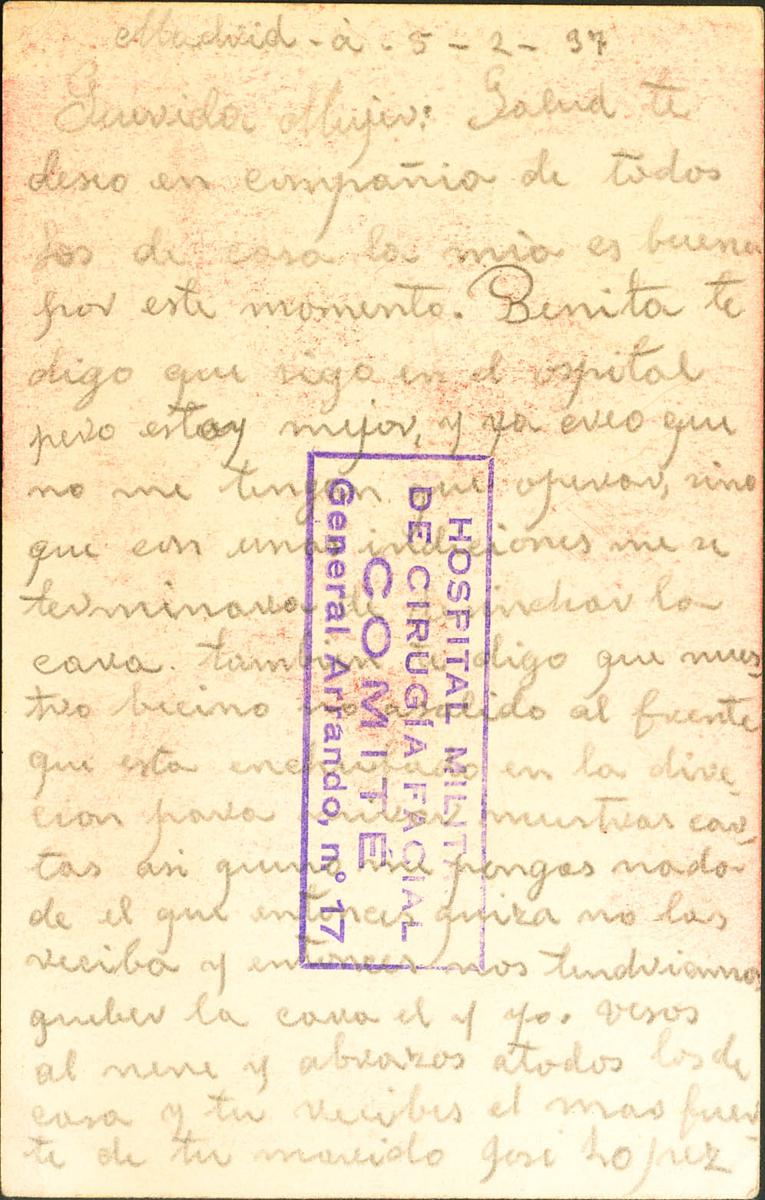 Madrid - a - 5 - 2 - 37
Querida Mujer: Salud te
deseo en compañia de todos
los de casa la mia es buena
por este momento. Benita te
digo que sigo en el ospital
pero estoy mejor, y ya creo que
no me tengan que operar, sino
que con unas indiciones me se
terminara de
la
cara. tambien te digo que nues
tro becino no a salido al frente
que esta enchufado en la dire
cion para mirar nuestras car
tas asi que no me pongas nada
de el que entonces quiza no las
reciba y entonces nos tendriamos
queber la cara el y yo. vesos
al nene y abrazos atodos los de
casa y tu recibes el mas fuer
te de tu marido Jose Lopez
HOSPITAL MILIT
DE CIRUGÍA FACIAL
COMITÉ
General Arrando, n.° 17